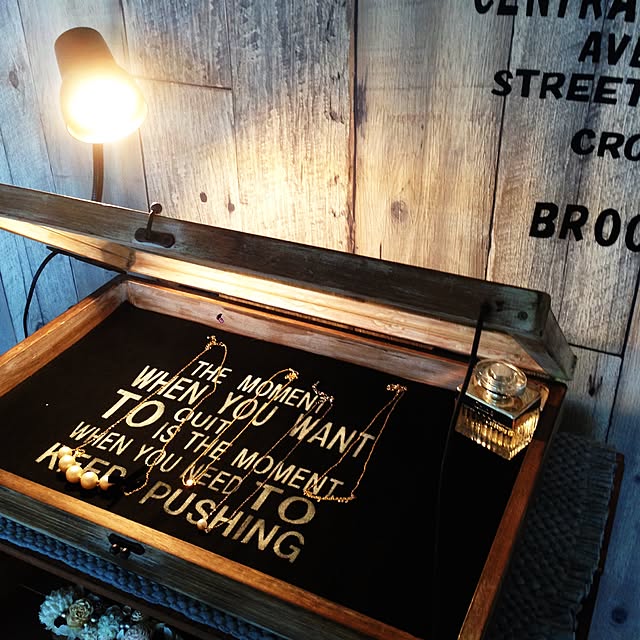 CENTRA
AVE
STREET
CRO
BROO
THE MOMENT
WHEN YOU WANT
TO QUIT
IS THE MOMENT
WHEN YOU NEED TO
KEEP PUSHING